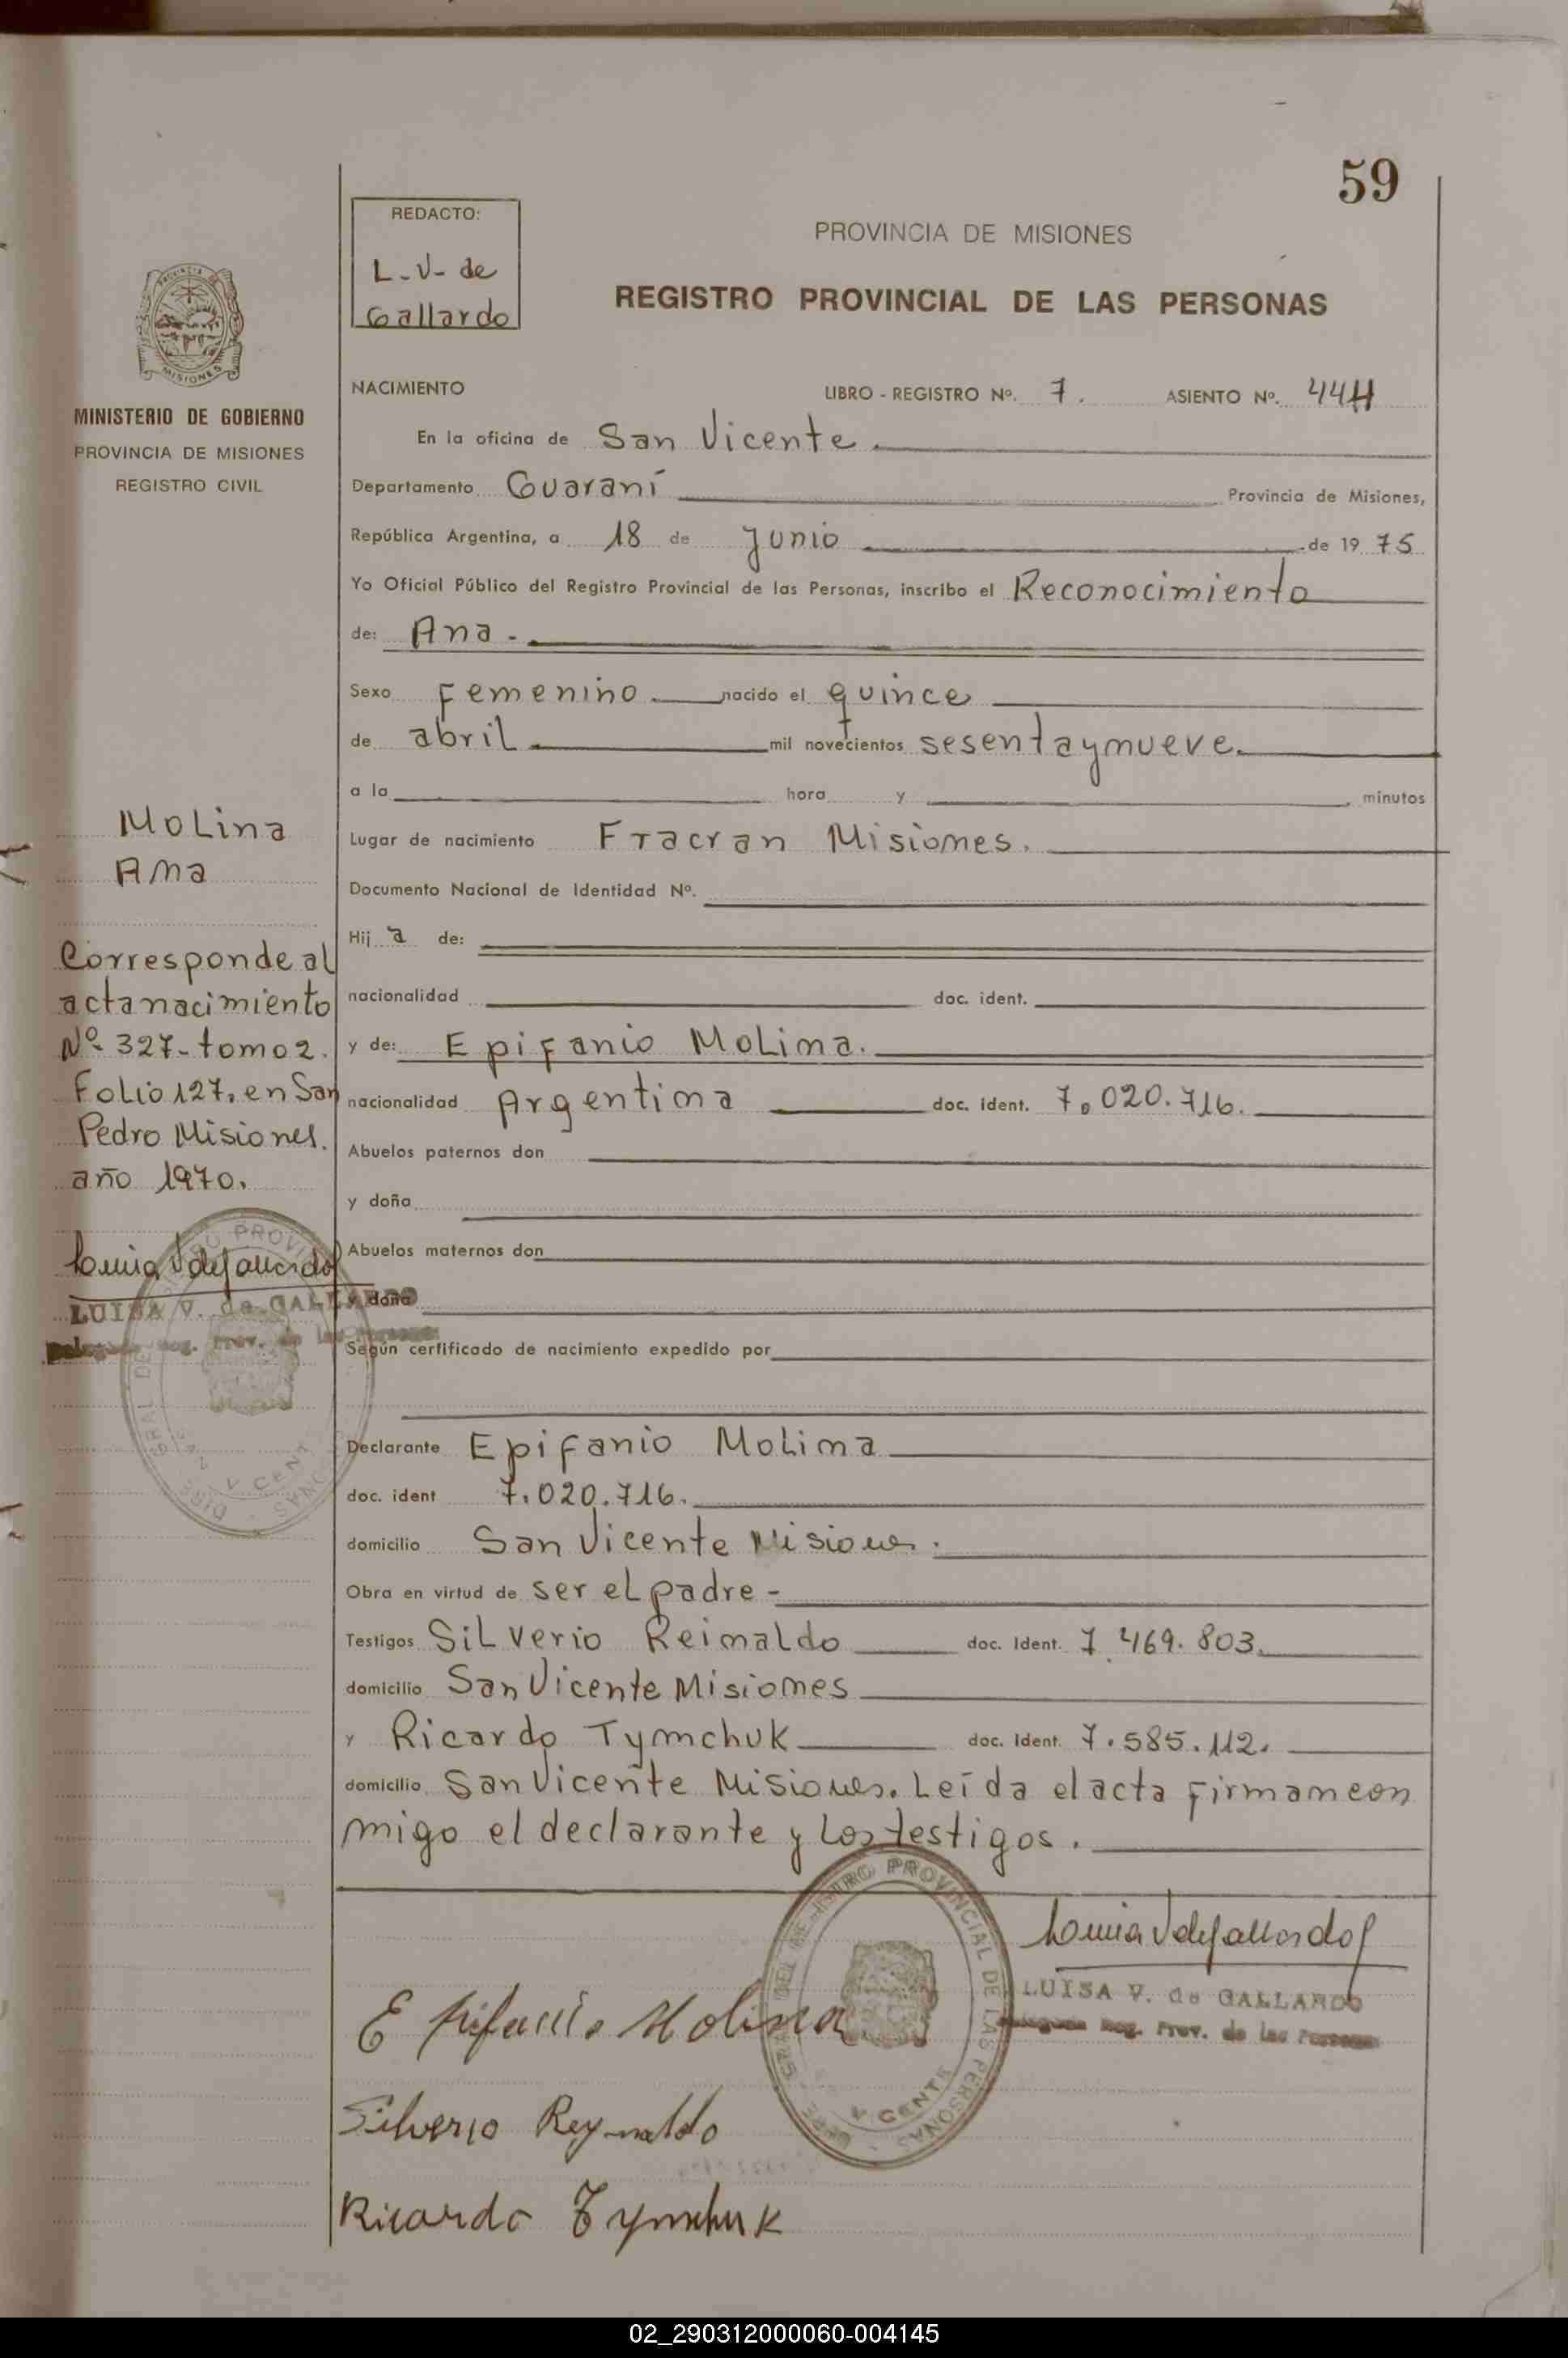 59
REDACTO:
L-V- de
Gallardo
PROVINCIA DE MISIONES
REGISTRO PROVINCIAL DE LAS PERSONAS
MISIONES
MINISTERIO DE GOBIERNO
PROVINCIA DE MISIONES
REGISTRO CIVIL
NACIMIENTO LIBRO - REGISTRO Nº. 7. ASIENTO Nº. 444
En la oficina de San Vicente.
Departamento Guaraní Provincia de Misiones,
República Argentina, a 18 de Junio de 19 75
Yo Oficial Público del Registro Provincial de las Personas, inscribo el Reconocimiento
de: Ana.
Sexo Femenino nacido el quince
de abril mil novecientos sesentaynueve.
a la hora y minutos
Lugar de nacimiento Fracran Misiones.
Documento Nacional de Identidad Nº.
Hij a de:
nacionalidad doc. ident.
y de: Epifanio Molina.
nacionalidad Argentina doc. ident. 7.020.716.
Abuelos paternos don
y doña
Abuelos maternos don
y doña
Según certificado de nacimiento expedido por
Molina
Ana
Corresponde al
acta nacimiento
Nº 327-tomo 2.
Folio 127. en San
Pedro Misiones.
año 1970.
Luisa V de Gallardo
LUISA V. de GALLARDO
Reg. Prov. de las Personas
Declarante Epifanio Molina
doc. ident 7.020.716.
domicilio San Vicente Misiones.
Obra en virtud de ser el padre-
Testigos Silverio Reinaldo doc. Ident. 7.469.803.
domicilio San Vicente Misiones
y Ricardo Tymchuk doc. Ident. 7.585.112.
domicilio San Vicente Misiones. Leída el acta firman con
migo el declarante y los testigos.
REGISTRO PROVINCIAL DE LAS PERSONAS
Luisa V de Gallardo
LUISA V. de GALLARDO
Reg. Prov. de las Personas
Epifanio Molina
Silverio Reynaldo
Ricardo Tymchuk
02_290312000060-004145